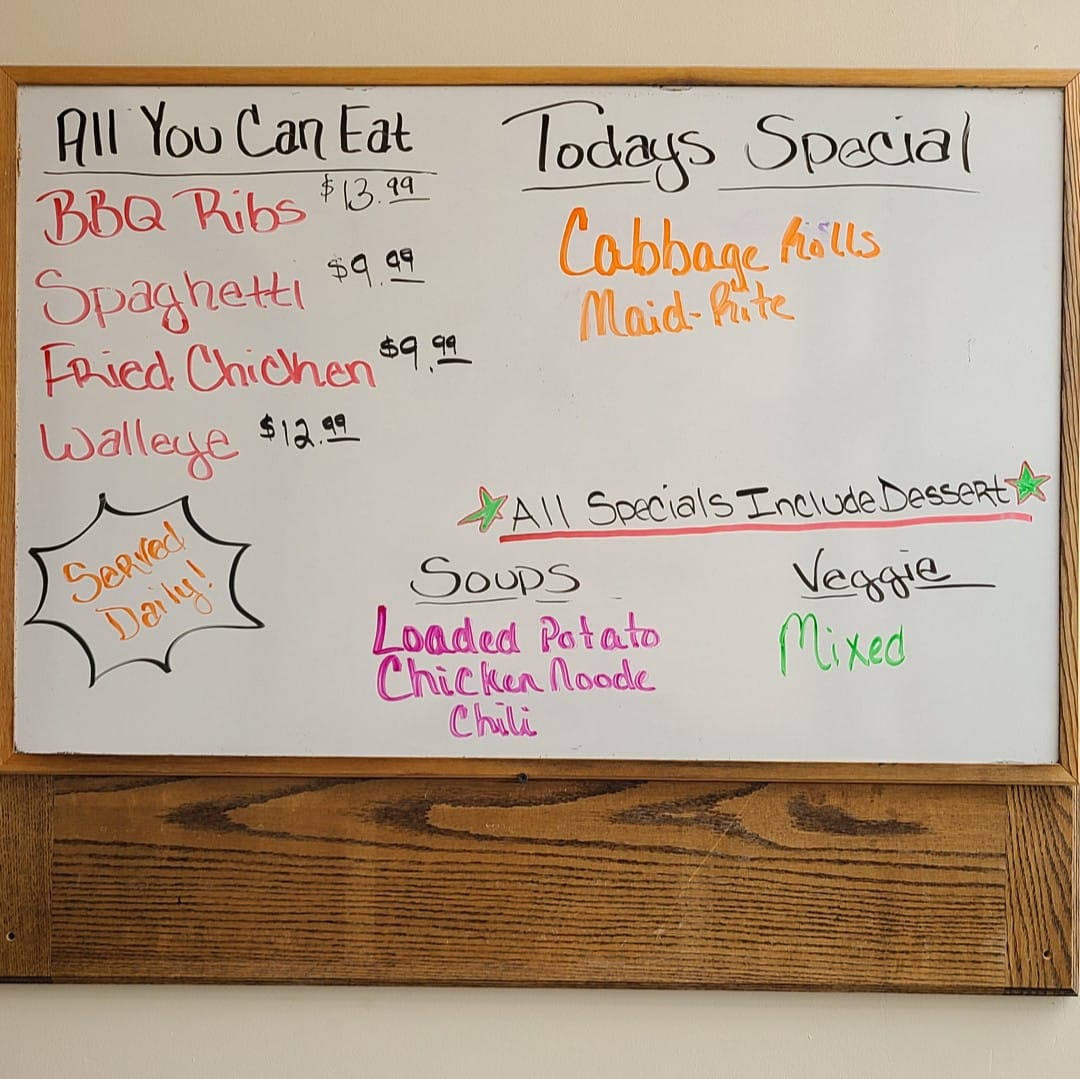 All You Can Eat
BBQ Ribs $13.99
Spaghetti $9.99
Fried Chicken $9.99
Walleye $12.99
Served
Daily!
Todays Special
Cabbage Rolls
Maid-Rite
All Specials Include Dessert
Soups
Loaded Potato
Chicken Noode
Chili
Veggie
Mixed